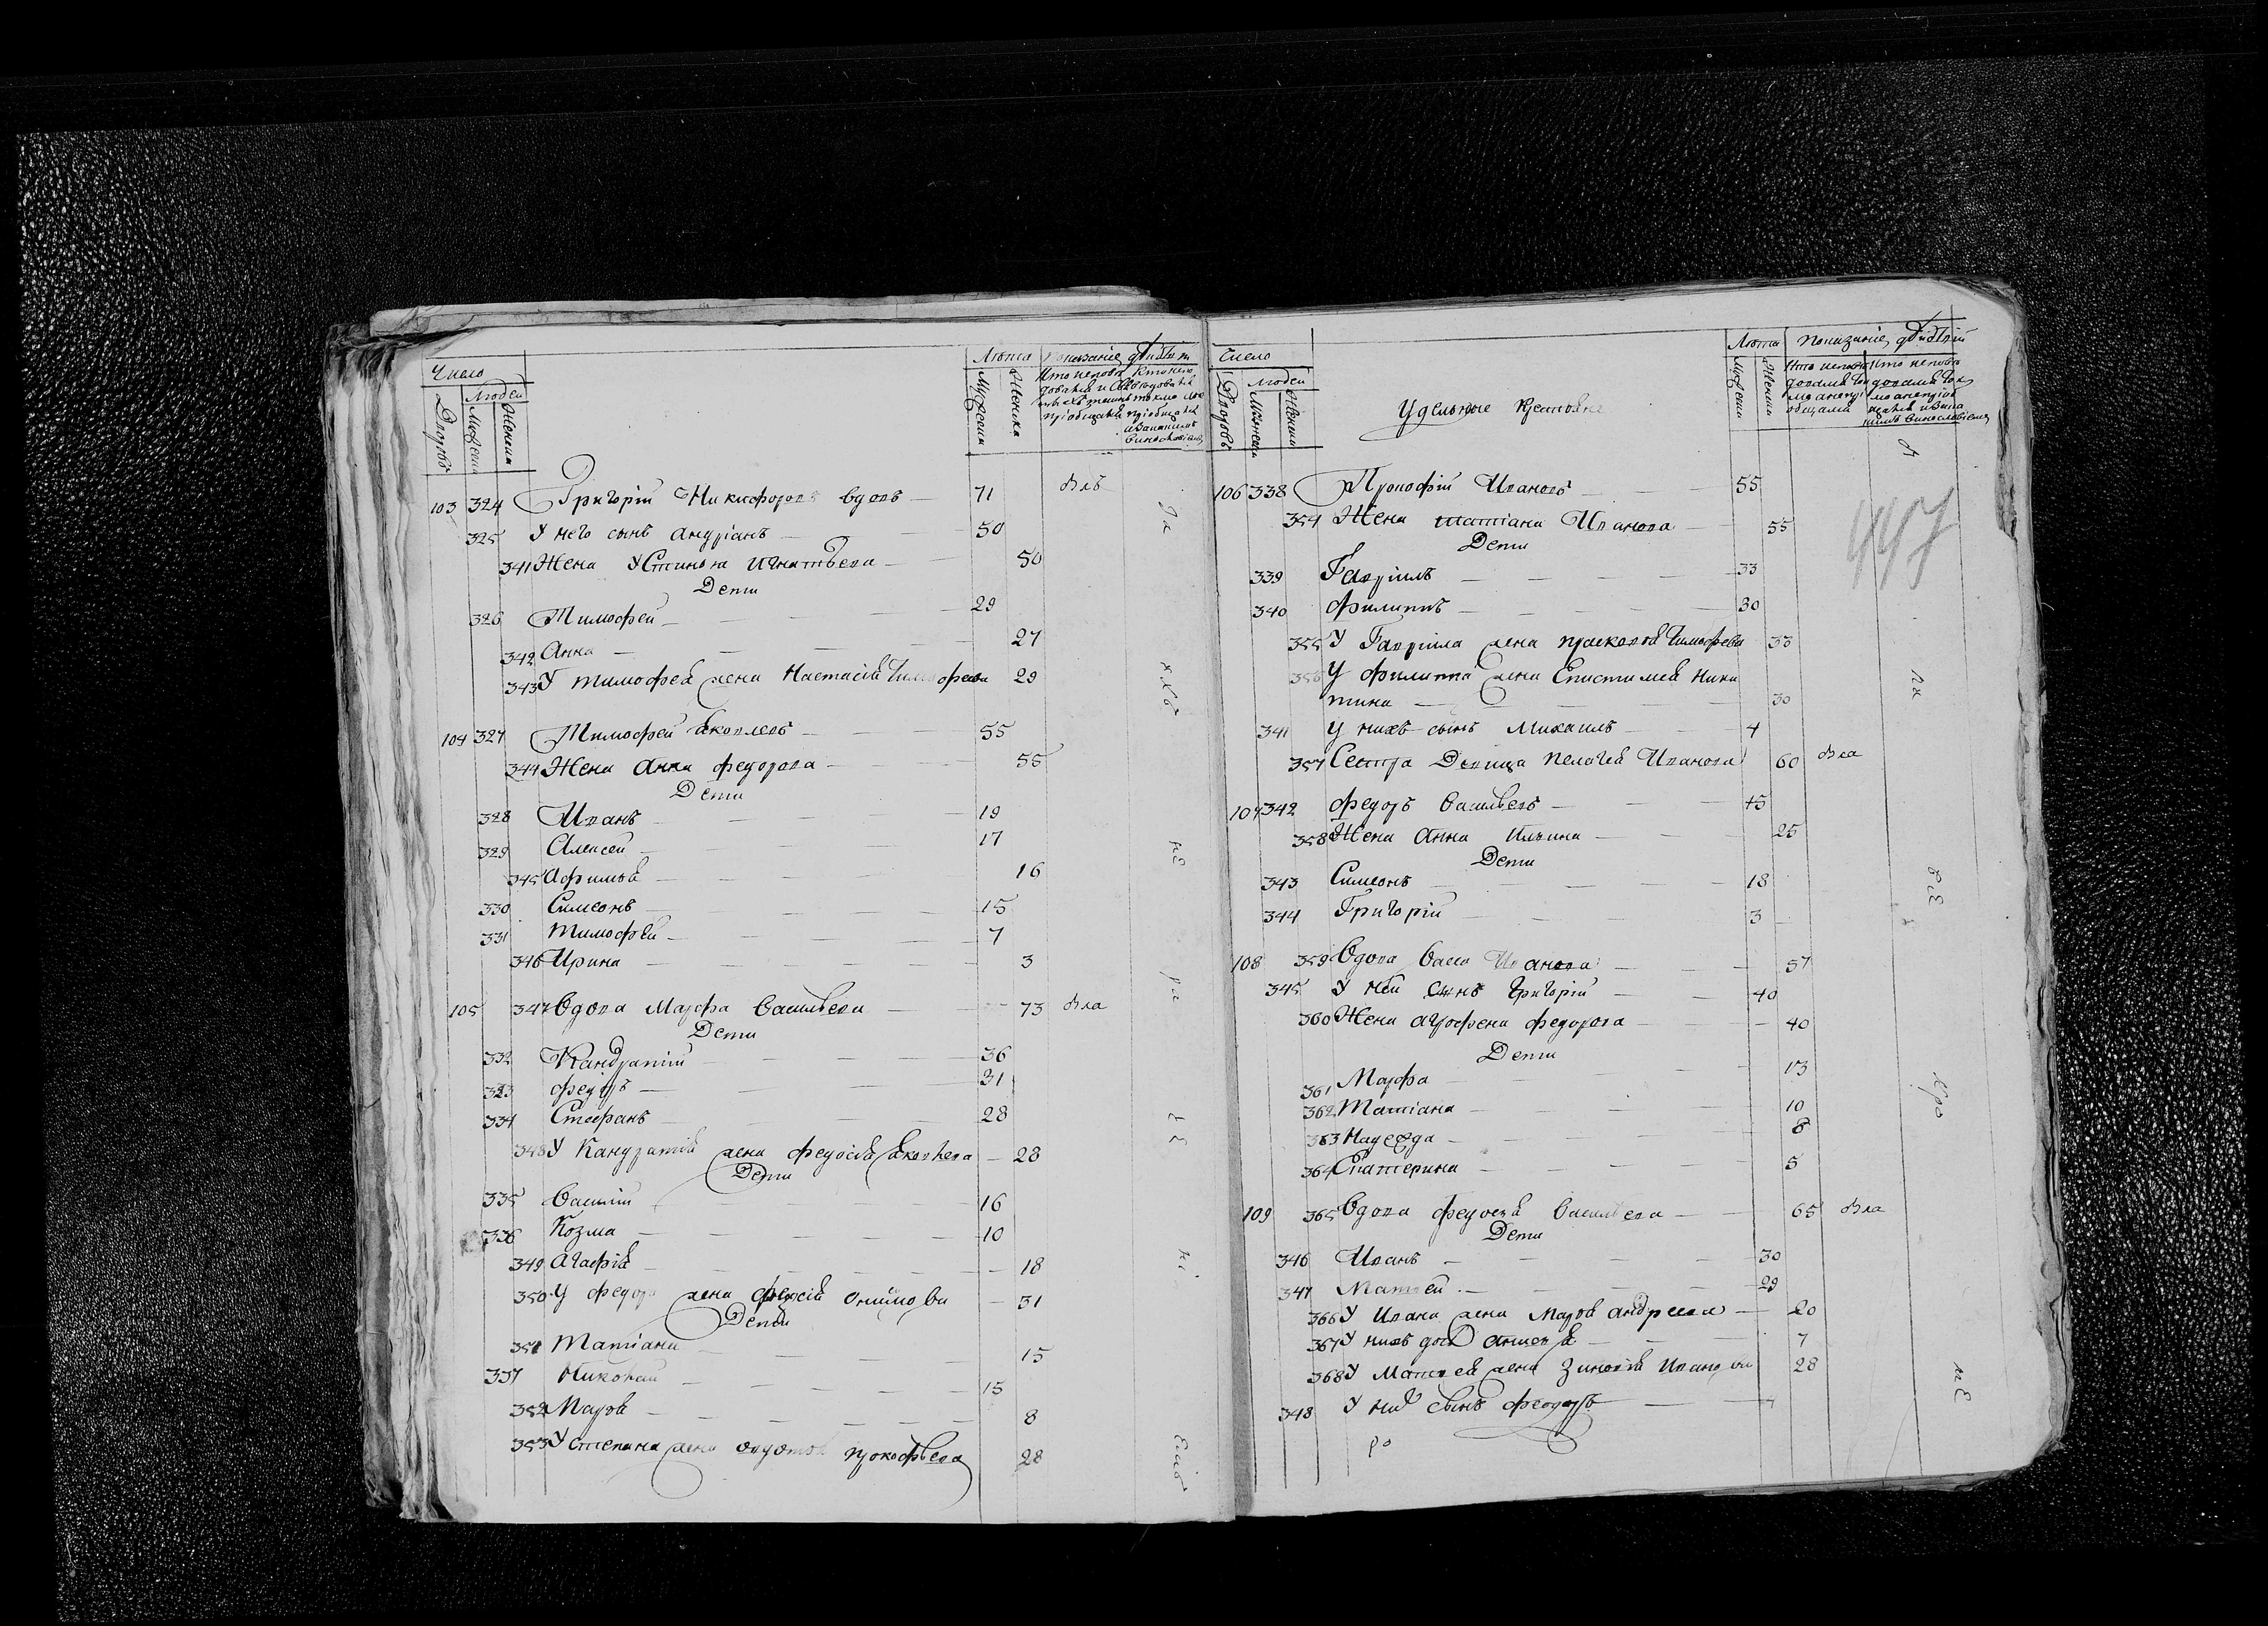 Число
Людей
Дворовъ
Мужеска
Женска
Лѣта
Мужеска
Женска
Показаніе дѣйств
103 324 Григорій Никифоровъ вдовъ 71 Былъ
325 У него сынъ Андріанъ 50
341 Жена Устинья Игнатьева 50
Дети
326 Тимофей 29
342 Анна 27
343 У Тимофея жена Настасія Тимофеева 29
104 327 Тимофей Яковлевъ 55
344 Жена Анна Федорова 55
Дети
328 Иванъ 19
329 Алексей 17
345 Афимья 16
330 Симеонъ 15
331 Тимофей 7
346 Ирина 3
105 347 Вдова Марфа Васильева 73 Была
Дети
332 Кандратій 36
323 Федоръ 31
334 Стефанъ 28
348 У Кандратія жена Федосія Яковлева 28
Дети
335 Василій 16
336 Козма 10
349 Агафія 18
350 У Федора жена Федосія 31
Дети
351 Татіана 15
337 Николай 15
352 Марья 8
353 У Степана жена Прокофьева 28
Число
Людей
Дворовъ
Мужеска
Женска
Удельные Крестьяне
Лѣта
Мужеска
Женска
Показаніе дѣйствій
447
106 338 Прокофій Ивановъ 55
354 Жена Татіана Иванова 55
Дети
339 Гавріилъ 33
340 Филиппъ 30
355 У Гавріила жена Прасковья Тимофеева 33
356 У Филиппа жена Епистимея Ники
тина 30
341 У нихъ сынъ Михаилъ 4
357 Сестра Девица Пелагея Иванова 60 Была
107 342 Федоръ Васильевъ 45
358 Жена Анна Ильина 25
Дети
343 Симеонъ 18
344 Григорій 3
108 359 Вдова Васса Иванова 57
345 У ней сынъ Григорій 40
360 Жена Агрофена Федорова 40
Дети
361 Марфа 13
362 Татіана 10
363 Надежда 8
364 Екатерина 5
109 365 Вдова Федосья Васильева 65 Была
Дети
346 Иванъ 30
347 Матвей 29
366 У Ивана жена Марья Андреева 20
367 У нихъ дочь 7
368 У Матвея жена Зиновія Иванова 28
348 У нихъ сынъ Феодоръ